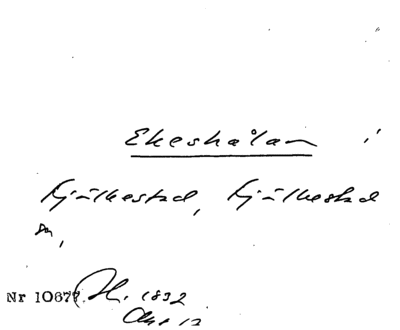 Ekeshålan i
Fjälkestad, Fjälkestad
sn,
Nr 10677. H. 1832
Akt 13